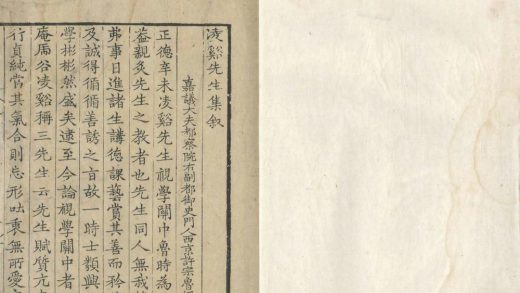 凌谿先生集叙
嘉議大夫都察院右副都御史門人西京許宗魯
正德辛未凌谿先生視學關中魯時為
益親炙先生之教者也先生同人無我
弗事日進諸生講德課藝賞其善而矜
及誠得循循善誘之旨故一時士類興
學彬彬然盛矣逮至今論視學關中者
庵禹谷凌谿稱三先生云先生賦質亢
行貞純當其氣合則忘形吐衷無所愛